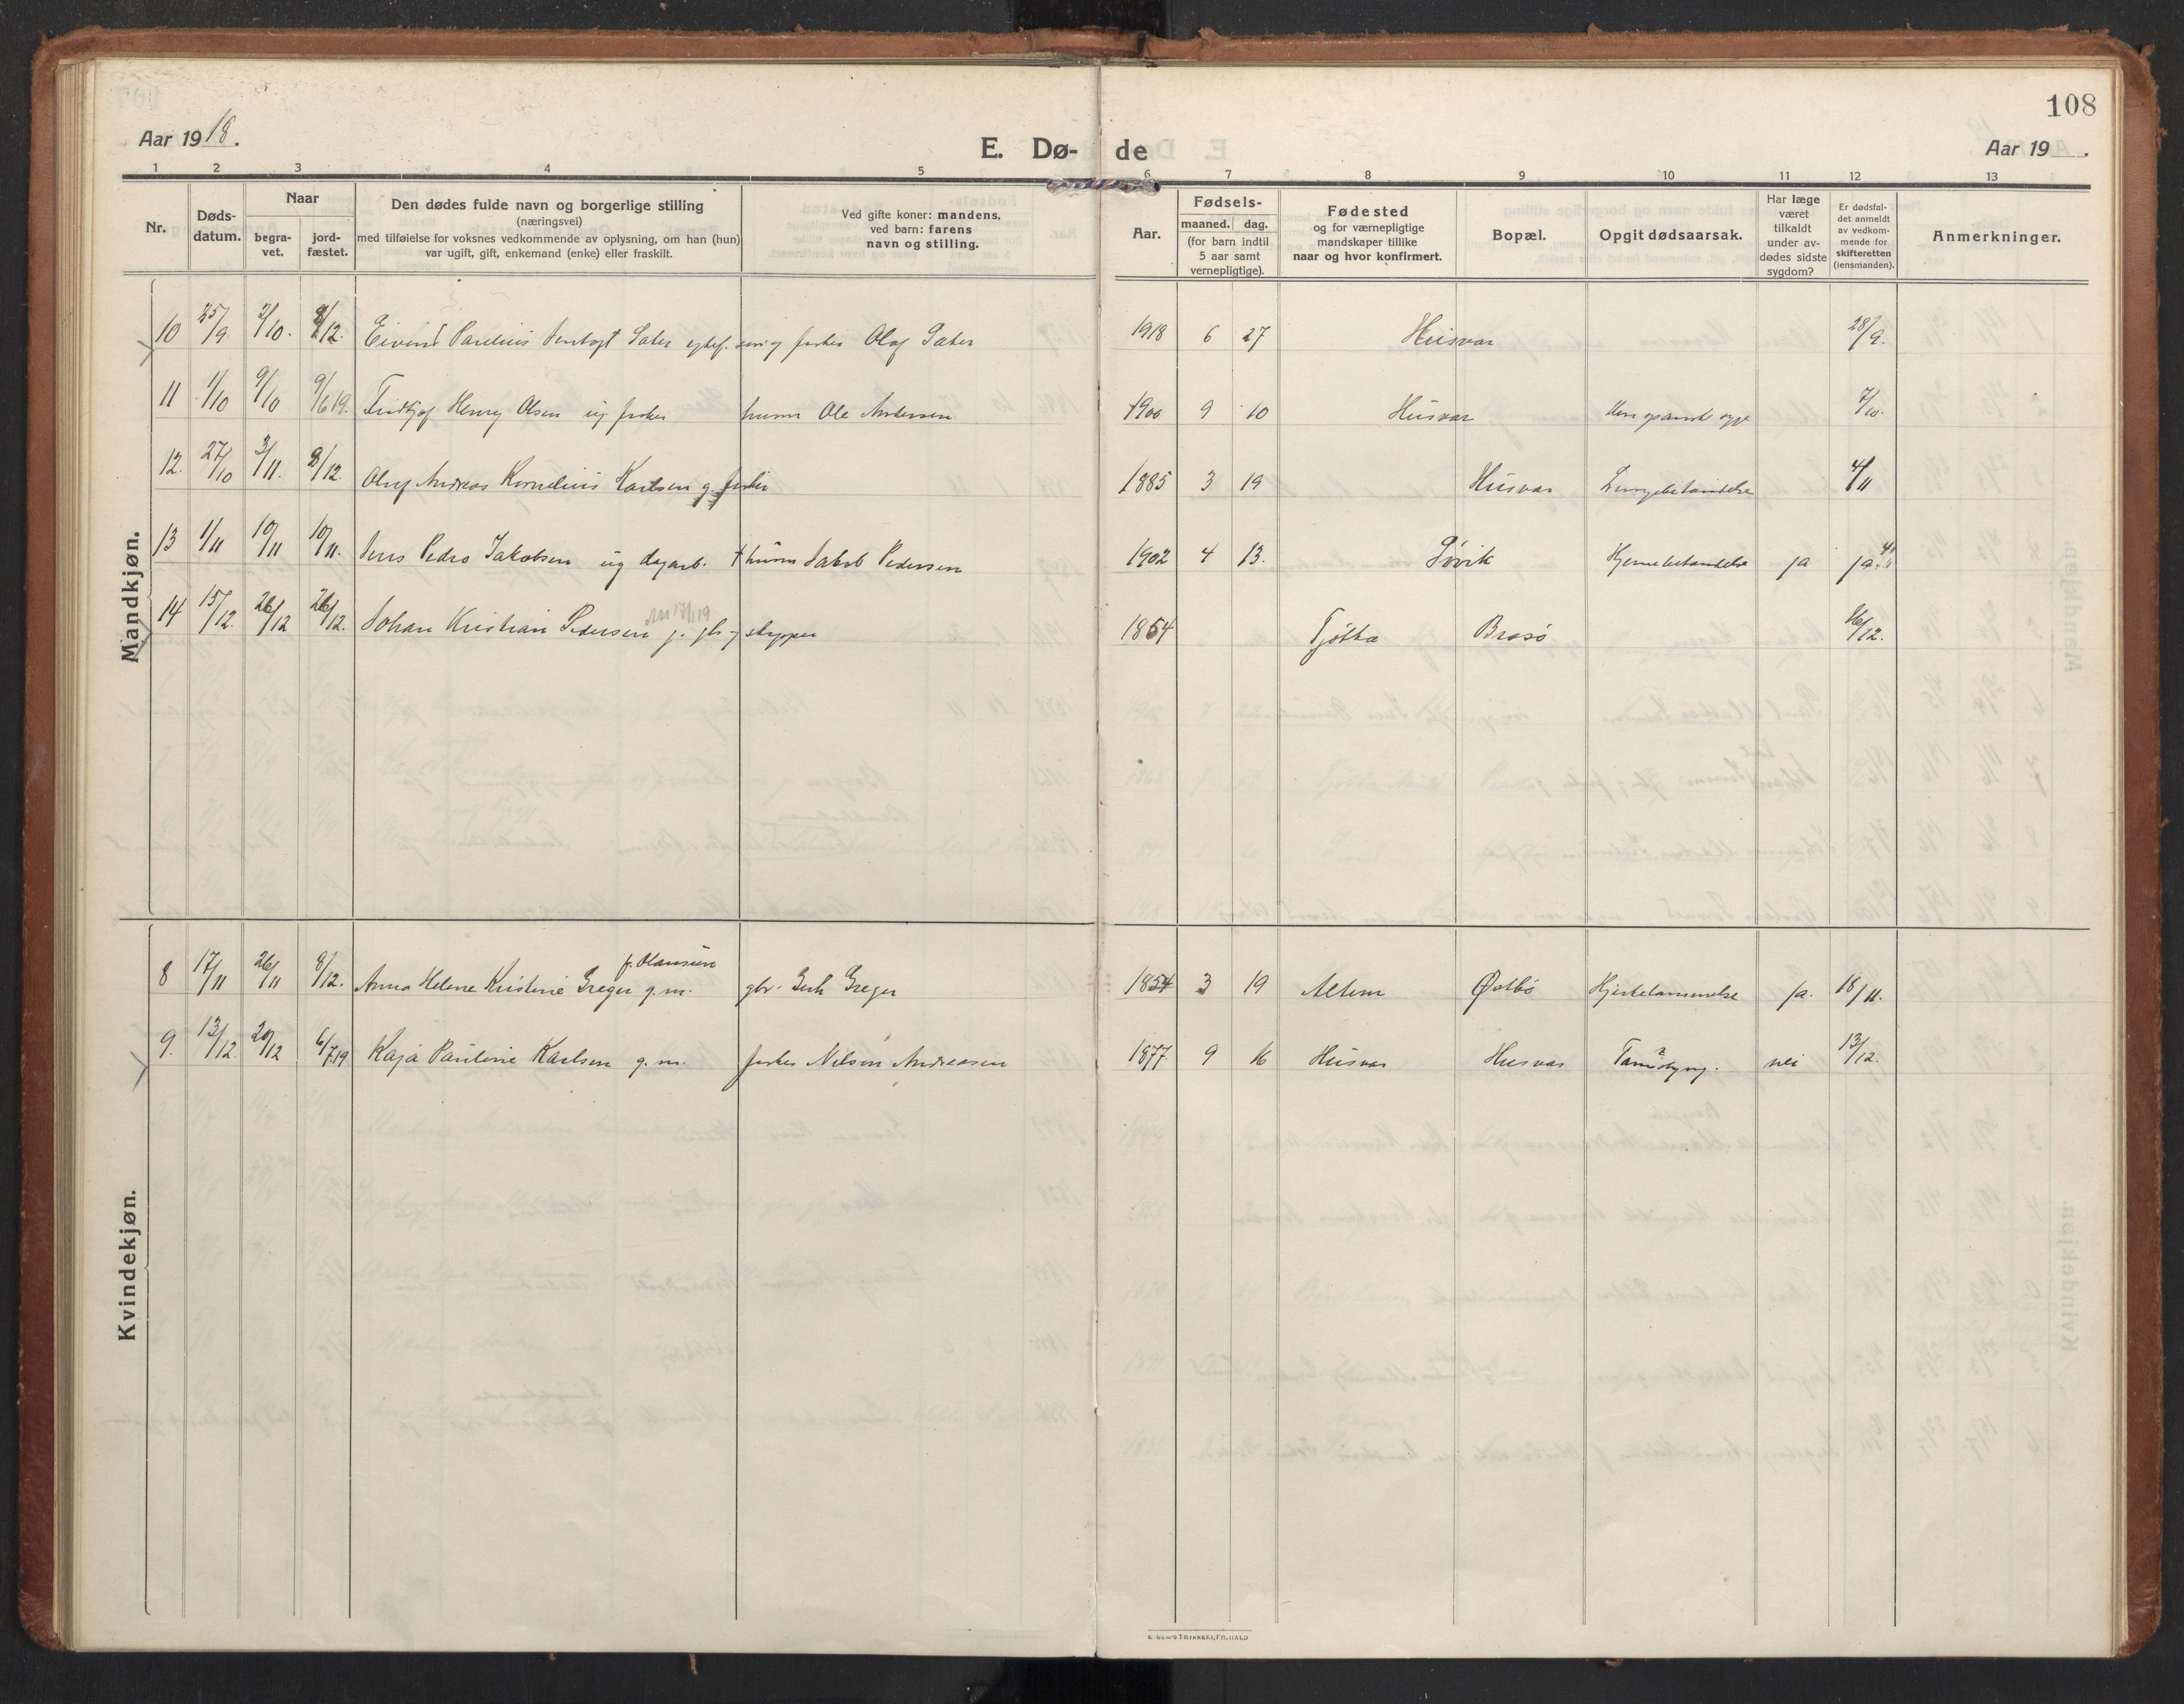 108
Aar 1918.
E. Dø- de
Aar 19 .
1 2 3 4 5 6 7 8 9 10 11 12 13
Nr.
Døds-
datum.
Naar
begra-
vet.
jord-
fæstet.
Den dødes fulde navn og borgerlige stilling
(næringsvei)
med tilføielse for voksnes vedkommende av oplysning, om han (hun)
var ugift, gift, enkemand (enke) eller fraskilt.
Ved gifte koner: mandens,
ved barn: farens
navn og stilling.
Aar.
Fødsels-
maaned. dag.
(for barn indtil
5 aar samt
vernepligtige).
Fødested
og for værnepligtige
mandskaper tillike
naar og hvor konfirmert.
Bopæl.
Opgit dødsaarsak.
Har læge
været
tilkaldt
under av-
dødes sidste
sygdom?
Er dødsfal-
det anmeldt
av vedkom-
mende for
skifteretten
(lensmanden).
Anmerkninger.
Mandkjøn.
10 25/9 2/10. 8/12. Eivind Parelius Sæter egtef. søn og fisker Olaf Sæter 1918 6 27 Husvær 28/9.
11 1/10 9/10 9/6 19. Fridtjof Henry Olsen ug. fisker husm Ole Andersen 1900 9 10 Husvær spansk syge 7/10.
12. 27/10 3/11. 8/12. Oluf Andreas Kornelius Karlsen g. fisker 1885 3 19 Husvær Lungebetændelse 4/11
13 1/11 10/11 10/11. Jens Pedro Jakobsen ug dagarb. † husm Jakob Pedersen 1902 4 13. Søvik Hjernebetændelse ja ja 4/11
14 15/12. 26/12 26/12. Johan Kristian Pedersen g. gbr og skipper 1854 Tjøtta Brasø 16/12.
Kvindekjøn.
f. Olausen
8 17/11 26/11 8/12. Anna Helene Kristine Greger g. m. gbr. Greger 1854 3 19 Altern Østbø Hjertelammelse ja. 18/11.
9. 13/12. 20/12 6/7 19 Kaja Pauline Karlsen g. m. fisker Nilson Andreasen 1877 9 16 Husvær Husvær nei 13/12.